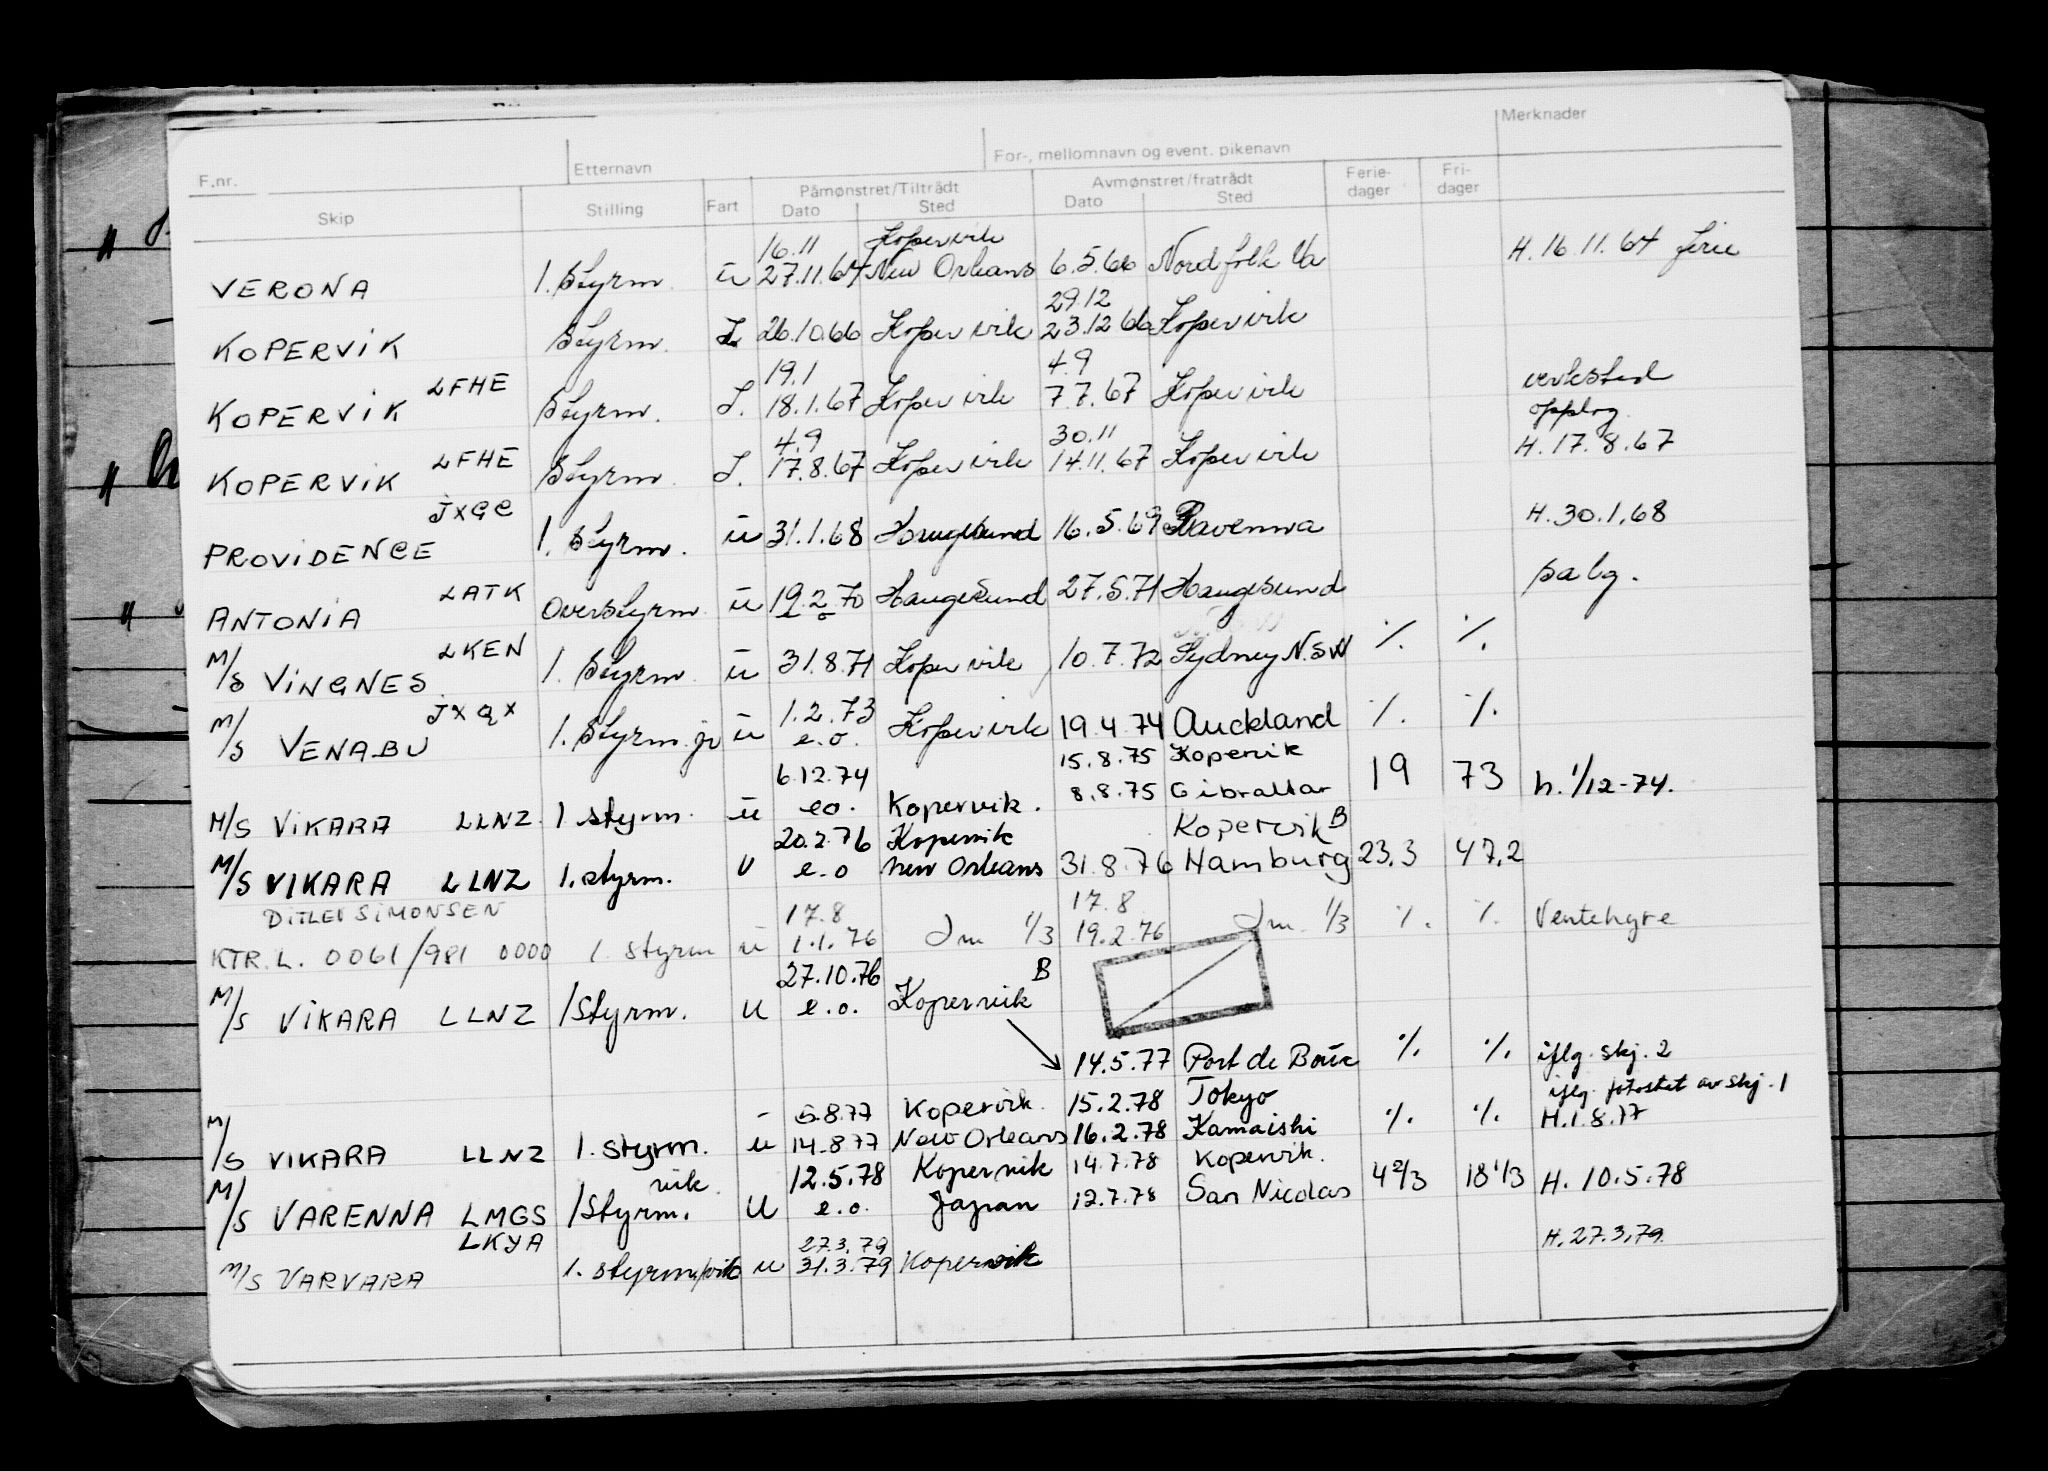 F.nr. Etternavn For-, mellomnavn og event. pikenavn Merknader
Skip Stilling Fart Påmønstret/Tiltrådt Avmønstret/fratrådt Ferie- Fri-
Dato Sted Dato Sted dager dager
16.11 Kopervik
VERONA 1. Styrm. u 27.11.64 New Orleans 6.5.66 Nordfolk Va H. 16.11.64 ferie
29.12
KOPERVIK Styrm. I 26.10.66 Kopervik 23.12.66 Kopervik
19.1 4.9 verksted
KOPERVIK LFHE Styrm. I. 18.1.67 Kopervik 7.7.67 Kopervik opplog.
4.9 30.11
KOPERVIK LFHE Styrm. I. 17.8.67 Kopervik 14.11.67 Kopervik H. 17.8.67
PROVIDENCE JXGC 1. Styrm. u 31.1.68 Haugesund 16.5.69 Ravenna H. 30.1.68
ANTONIA LATK Overstyrm. u 19.2.70 Haugesund 27.5.71 Haugesund salg.
M/S VINGNES LKEN 1. Styrm. u 31.8.71 Kopervik 10.7.72 Sydney N.S.W % %
1.2.73
M/S VENABU JXQX 1. Styrm. jr u e.o. Kopervik 19.4.74 Auckland % %
6.12.74 15.8.75 Kopervik
M/S VIKARA LLNZ 1 styrm. u eo. Kopervik. 8.8.75 Gibraltar 19 73 h. 1/12-74.
20.2.76 Kopervik Kopervik B
M/S VIKARA LLNZ 1. styrm. U e.o New Orleans 31.8.76 Hamburg 23.3 47.2
DITLEV SIMONSEN 17.8 17.8
KTR.L. 0061/981 0000 1. styrm u 1.1.76 Jm 1/3 19.2.76 Jm. 1/3 % % Ventehyre
27.10.76 B
M/S VIKARA LLNZ 1 Styrm. U e.o. Kopervik
14.5.77 Port de Bouc % % iflg. skj. 2
5.8.77 Kopervik. 15.2.78 Tokyo iflg. fotostat av skj. 1
M/S VIKARA LLNZ 1. styrm. u 14.8.77 New Orleans 16.2.78 Kamaishi % % H.1.8.77
vik. 12.5.78 Kopervik 14.7.78 Kopervik.
M/S VARENNA LMGS 1 Styrm. U e.o. Japan 12.7.78 San Nicolas 4 2/3 18 1/3 H. 10.5.78
LKYA 27.3.79 H. 27.3.79
M/S VARVARA 1. styrm/vik u 31.3.79 Kopervik